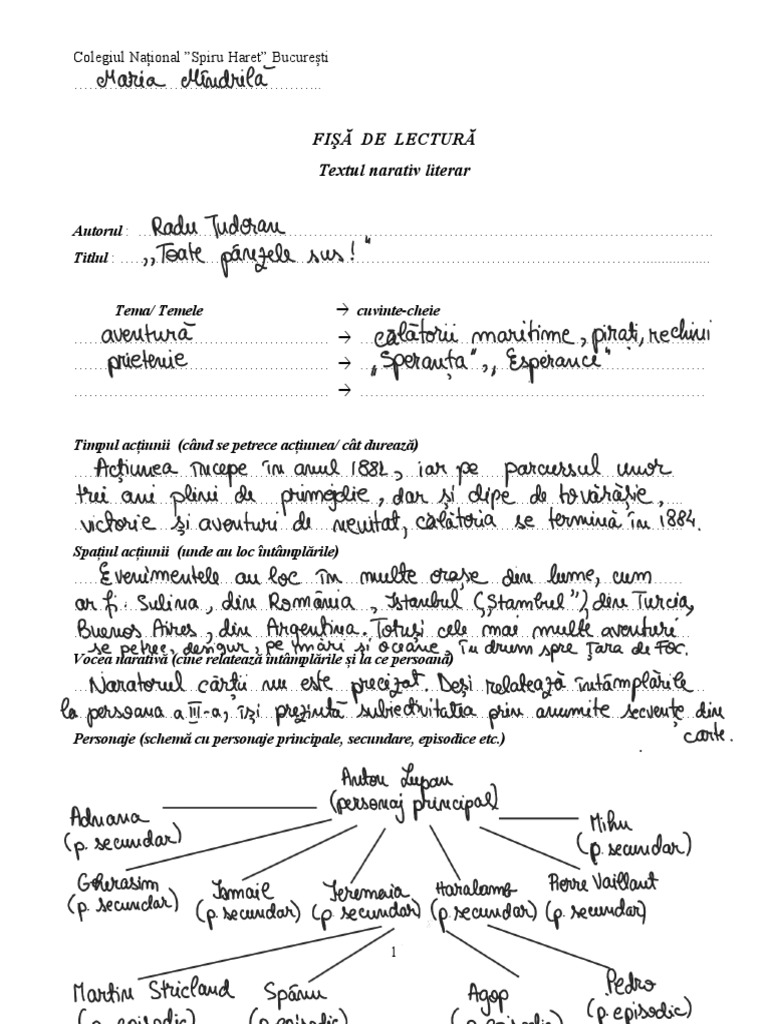 Colegiul Național ”Spiru Haret” București
Maria Mîndrilă
FIŞĂ DE LECTURĂ
Textul narativ literar
Autorul : Radu Tudoran
Titlul : ,,Toate pânzele sus!"
Tema/ Temele → cuvinte-cheie
aventură → călătorii maritime, pirați, rechini
prietenie → „Speranța", ,,Espérance"
→
Timpul acțiunii (când se petrece acțiunea/ cât durează)
Acțiunea începe în anul 1882, iar pe parcursul unor
trei ani plini de primejdie, dar și clipe de tovărășie,
victorie și aventuri de neuitat, călătoria se termină în 1884.
Spațiul acțiunii (unde au loc întâmplările)
Evenimentele au loc în multe orașe din lume, cum
ar fi: Sulina, din România, Istanbul (,,Stambul"), din Turcia,
Buenos Aires, din Argentina. Totuși cele mai multe aventuri
se petrec, desigur, pe mări și oceane, în drum spre Țara de Foc.
Vocea narativă (cine relatează întâmplările și la ce persoană)
Naratorul cărții nu este precizat. Deși relatează întâmplările
la persoana a III-a, își prezintă subiectivitatea prin anumite secvențe din
carte.
Personaje (schemă cu personaje principale, secundare, episodice etc.)
Anton Lupan
(personaj principal)
Adnana
(p. secundar)
Mihu
(p. secundar)
Gherasim Ismail Ieremia Haralamb Pierre Vaillant
(p. secundar) (p. secundar) (p. secundar) (p. secundar) (p. secundar)
1
Martin Stricland Spânu Agop Pedro
(p. episodic) (p. episodic) (p. episodic) (p. episodic)